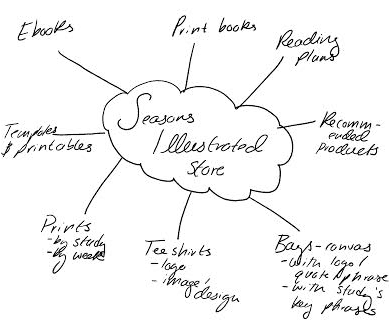 Ebooks
Print books
Reading
plans
Seasons
Illustrated
Store
Recomm-
ended
products
Templates
& printables
Prints
- by study
- by week
Tee shirts
- logo
- image/
design
Bags - canvas
- with logo/
quote phrase
- with study's
key phrases